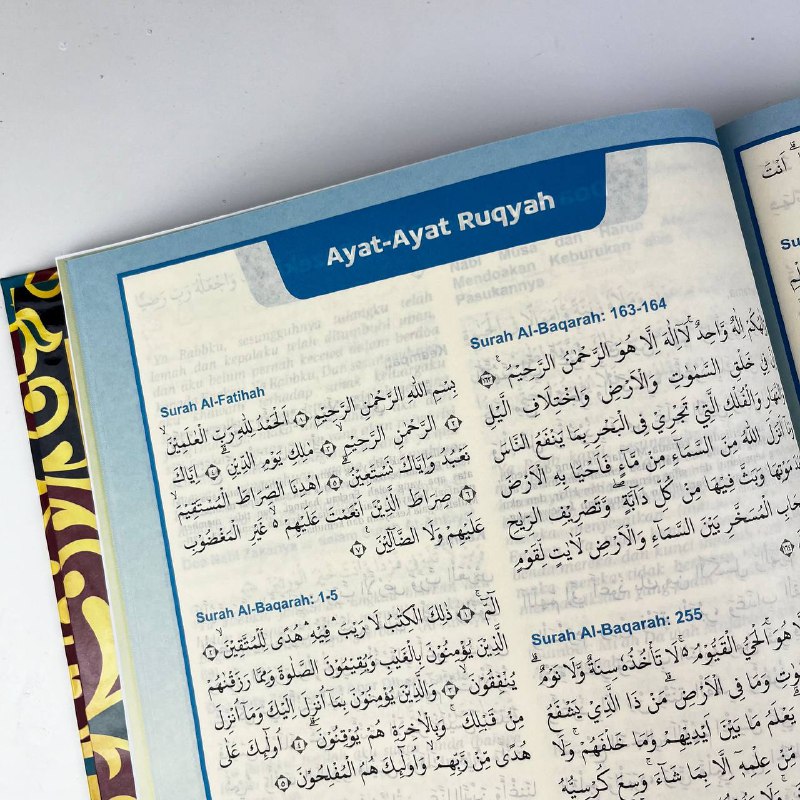 Ayat-Ayat Ruqyah
Surah Al-Fatihah
بِسْمِ اللّٰهِ الرَّحْمٰنِ الرَّحِيْمِ ﴿١﴾ اَلْحَمْدُ لِلّٰهِ رَبِّ الْعٰلَمِيْنَۙ
﴿٢﴾ الرَّحْمٰنِ الرَّحِيْمِۙ ﴿٣﴾ مٰلِكِ يَوْمِ الدِّيْنِۗ ﴿٤﴾ اِيَّاكَ
نَعْبُدُ وَاِيَّاكَ نَسْتَعِيْنُۗ ﴿٥﴾ اِهْدِنَا الصِّرَاطَ الْمُسْتَقِيْمَۙ
﴿٦﴾ صِرَاطَ الَّذِيْنَ اَنْعَمْتَ عَلَيْهِمْ ەۙ غَيْرِ الْمَغْضُوْبِ
عَلَيْهِمْ وَلَا الضَّاۤلِّيْنَ ﴿٧﴾
Surah Al-Baqarah: 1-5
الۤمّۤۚ ﴿١﴾ ذٰلِكَ الْكِتٰبُ لَا رَيْبَۛ فِيْهِۛ هُدًى لِّلْمُتَّقِيْنَۙ ﴿٢﴾
الَّذِيْنَ يُؤْمِنُوْنَ بِالْغَيْبِ وَيُقِيْمُوْنَ الصَّلٰوةَ وَمِمَّا رَزَقْنٰهُمْ
يُنْفِقُوْنَۙ ﴿٣﴾ وَالَّذِيْنَ يُؤْمِنُوْنَ بِمَآ اُنْزِلَ اِلَيْكَ وَمَآ اُنْزِلَ
مِنْ قَبْلِكَۚ وَبِالْاٰخِرَةِ هُمْ يُوْقِنُوْنَۗ ﴿٤﴾ اُولٰۤىِٕكَ عَلٰى
هُدًى مِّنْ رَّبِّهِمْۙ وَاُولٰۤىِٕكَ هُمُ الْمُفْلِحُوْنَ ﴿٥﴾
Surah Al-Baqarah: 163-164
اِلٰهُكُمْ اِلٰهٌ وَّاحِدٌۚ لَآ اِلٰهَ اِلَّا هُوَ الرَّحْمٰنُ الرَّحِيْمُ ࣖ ﴿١٦٣﴾
فِيْ خَلْقِ السَّمٰوٰتِ وَالْاَرْضِ وَاخْتِلَافِ الَّيْلِ
وَالنَّهَارِ وَالْفُلْكِ الَّتِيْ تَجْرِيْ فِى الْبَحْرِ بِمَا يَنْفَعُ النَّاسَ
اَنْزَلَ اللّٰهُ مِنَ السَّمَاۤءِ مِنْ مَّاۤءٍ فَاَحْيَا بِهِ الْاَرْضَ
مَوْتِهَا وَبَثَّ فِيْهَا مِنْ كُلِّ دَاۤبَّةٍۖ وَّتَصْرِيْفِ الرِّيٰحِ
السَّحَابِ الْمُسَخَّرِ بَيْنَ السَّمَاۤءِ وَالْاَرْضِ لَاٰيٰتٍ لِّقَوْمٍ
Surah Al-Baqarah: 255
هُوَۚ اَلْحَيُّ الْقَيُّوْمُ ەۚ لَا تَأْخُذُهٗ سِنَةٌ وَّلَا نَوْمٌۗ
وَمَا فِى الْاَرْضِۗ مَنْ ذَا الَّذِيْ يَشْفَعُ
يَعْلَمُ مَا بَيْنَ اَيْدِيْهِمْ وَمَا خَلْفَهُمْۚ وَلَا
مِّنْ عِلْمِهٖٓ اِلَّا بِمَا شَاۤءَۚ وَسِعَ كُرْسِيُّهُ
اَنْتَ